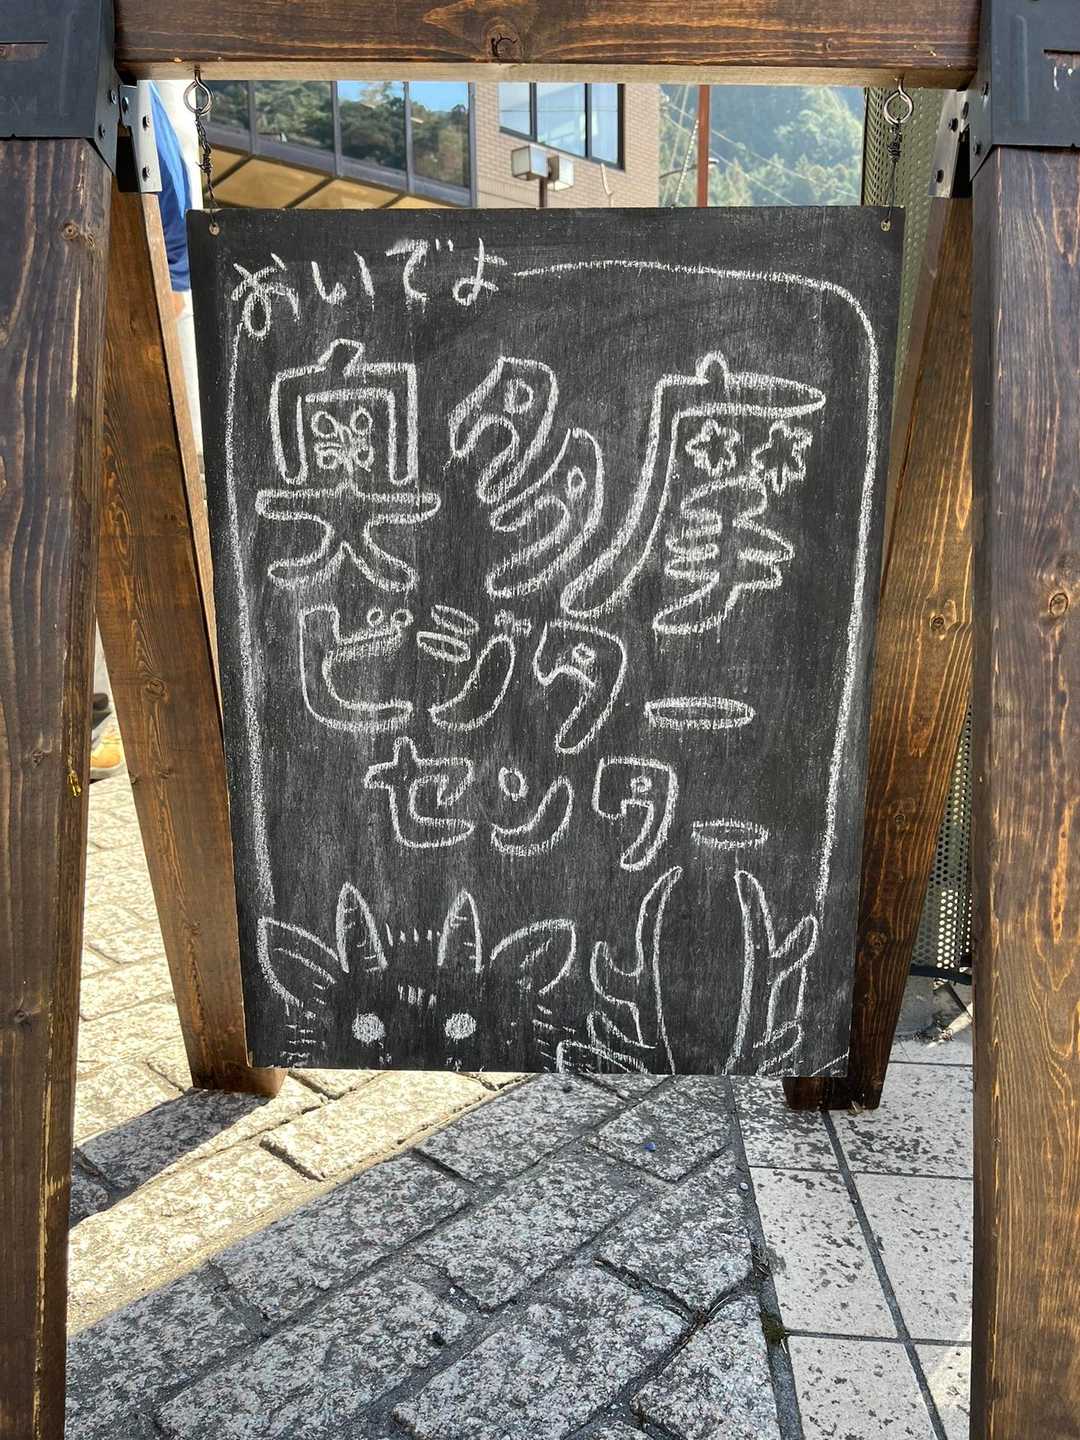 おいでよ
奥多摩
ビジター
センター